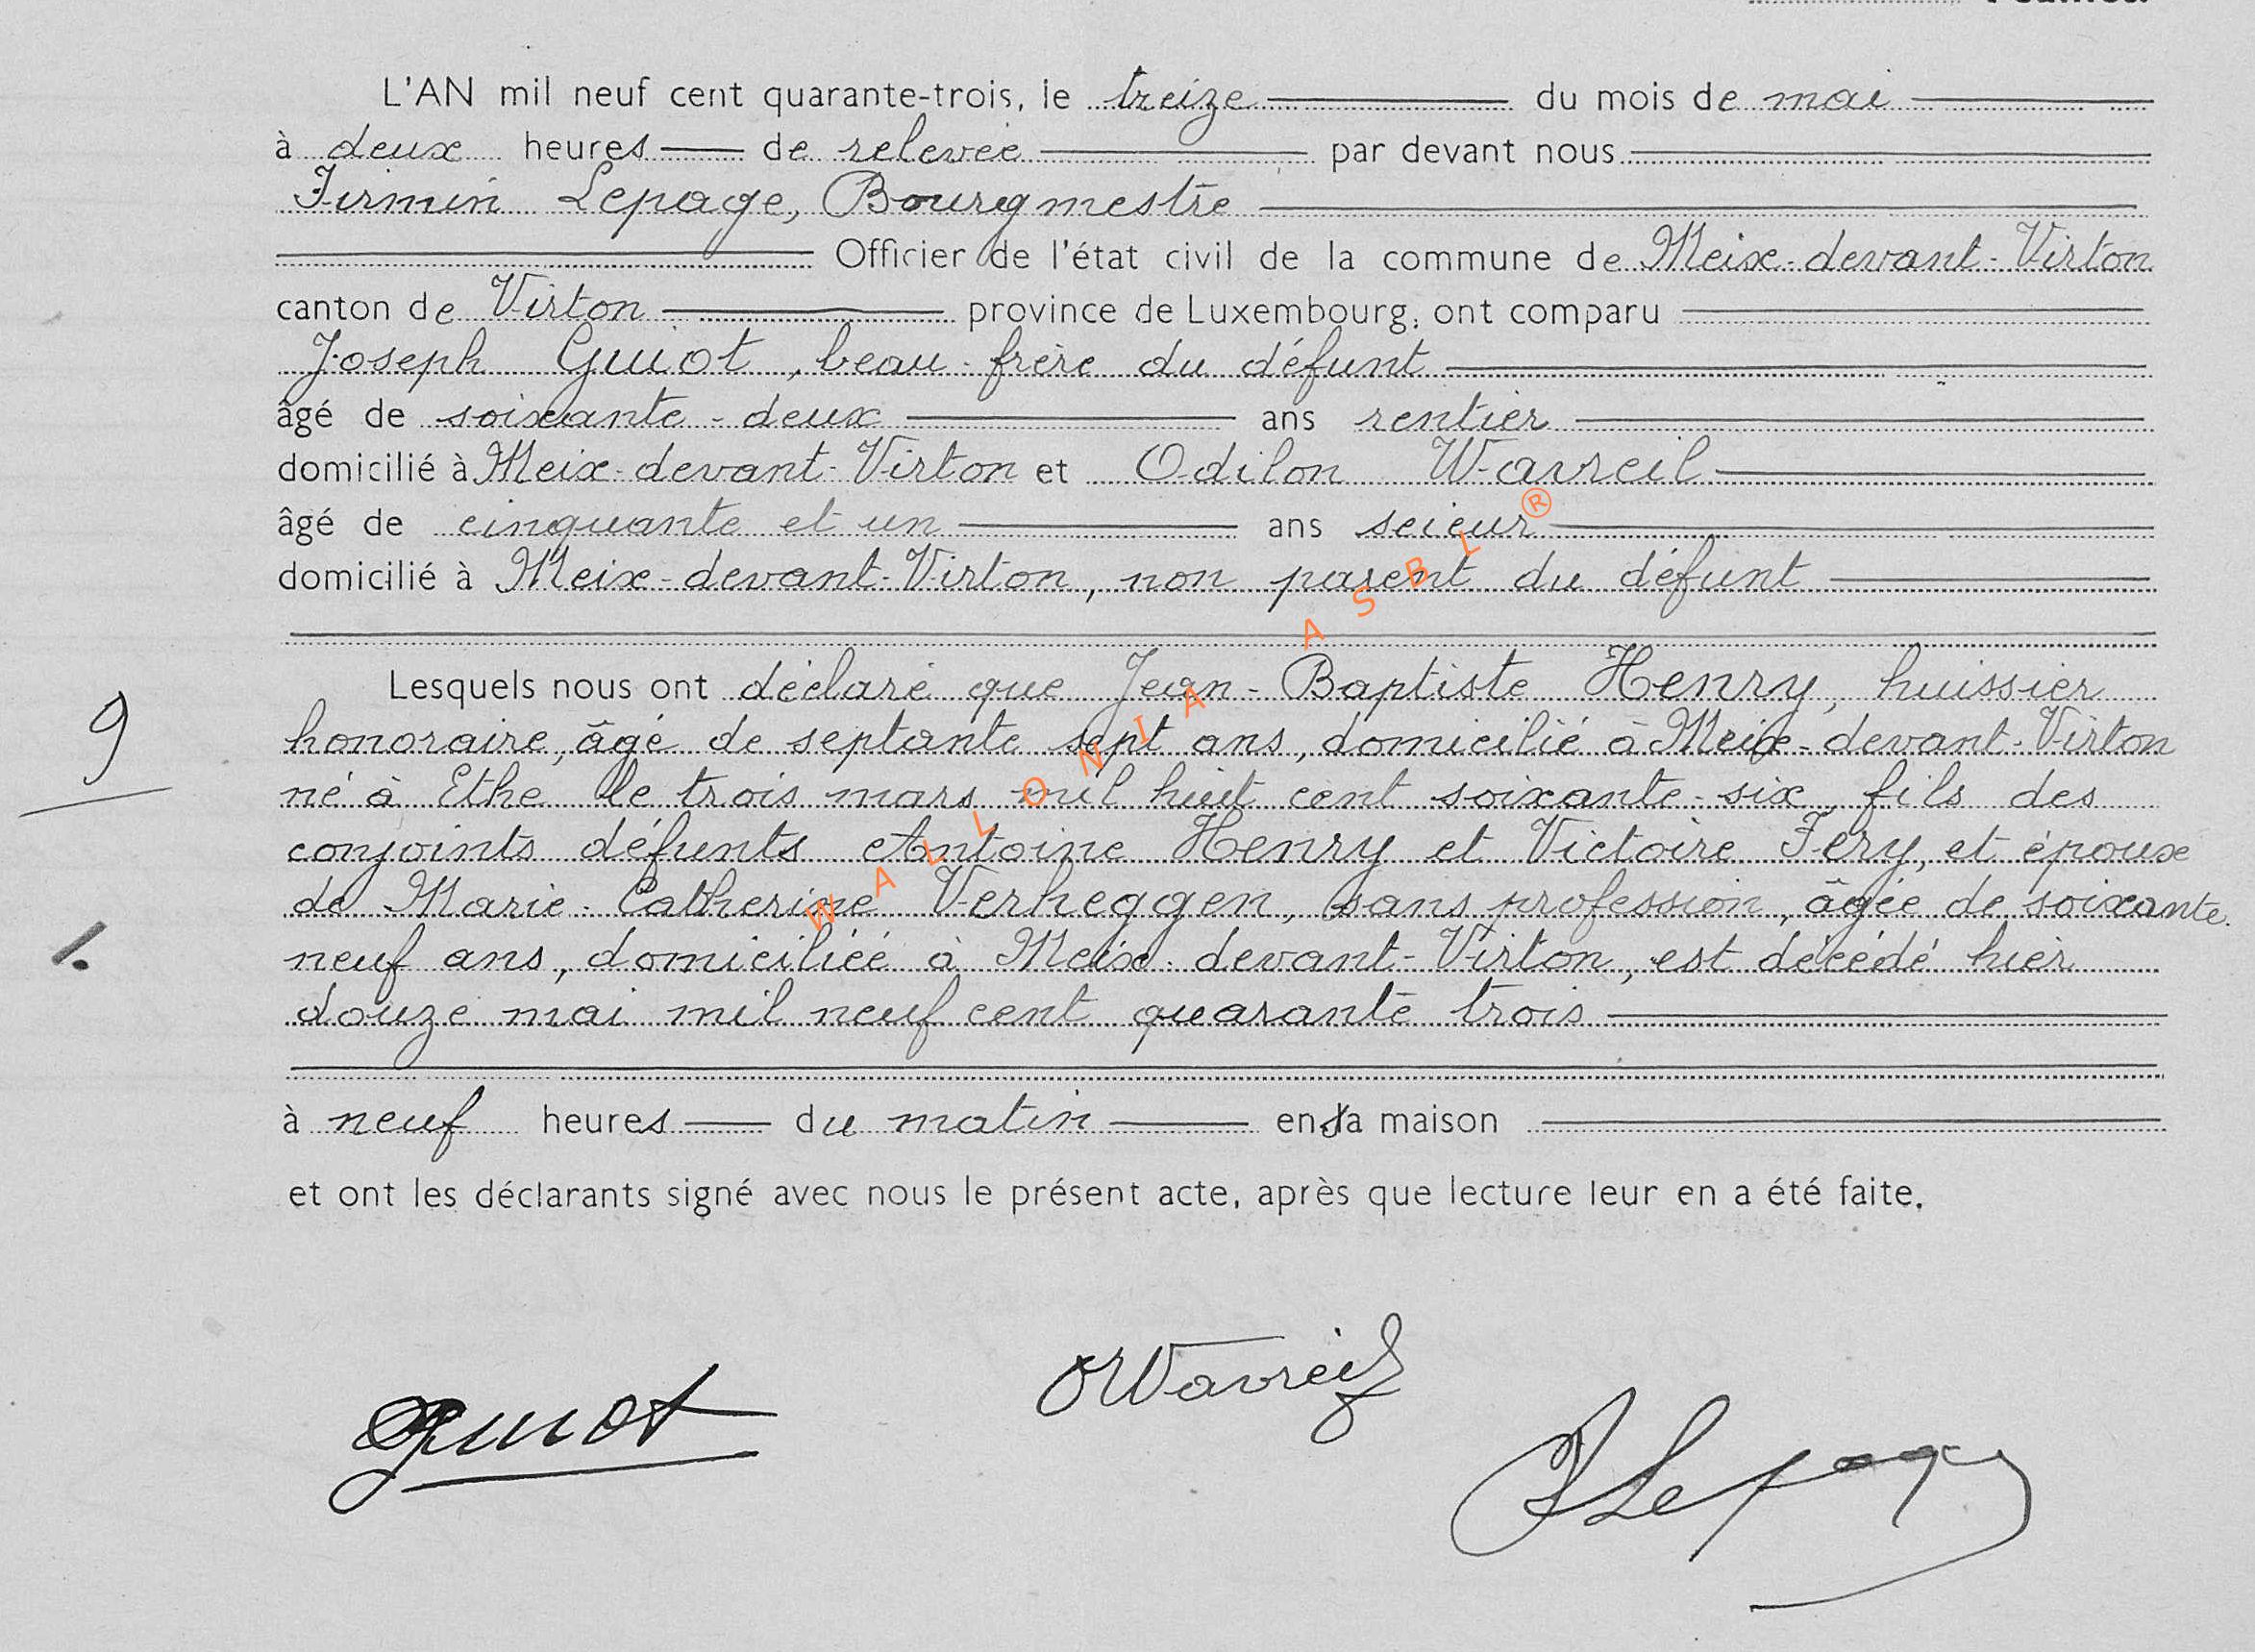 L'AN mil neuf cent quarante-trois, le treize du mois de mai
à deux heures de relevée par devant nous
Firmin Lepage, Bourgmestre
Officier de l'état civil de la commune de Meix-devant-Virton
canton de Virton province de Luxembourg, ont comparu
Joseph Guiot, beau-frère du défunt
âgé de soixante-deux ans rentier
domicilié à Meix-devant-Virton et Odilon Wavreil
âgé de cinquante et un ans scieur
domicilié à Meix-devant-Virton, non parent du défunt
Lesquels nous ont déclaré que Jean-Baptiste Henry, huissier
9 honoraire, âgé de septante sept ans, domicilié à Meix-devant-Virton
né à Ethe le trois mars mil huit cent soixante-six, fils des
conjoints défunts Antoine Henry et Victoire Fery, et époux
de Marie-Catherine Verheggen, sans profession, âgée de soixante-
neuf ans, domiciliée à Meix-devant-Virton, est décédé hier
douze mai mil neuf cent quarante trois
à neuf heures du matin en sa maison
et ont les déclarants signé avec nous le présent acte, après que lecture leur en a été faite.
Guiot
OWavreil
FLepage
WALLONIA ASBL ®